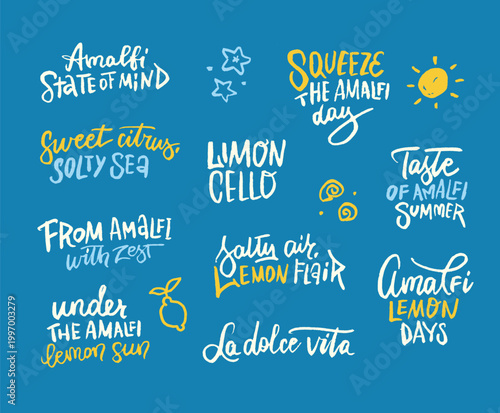 Amalfi
STATE OF MIND
Sweet citrus,
SOLTY SEA
FROM AMALFI
with zest
under
THE AMALFI
lemon sun
LIMON
CELLO
Salty air,
LEMON FLAIR
La dolce vita
SQUEEZE
THE AMALFI
day
Taste
OF AMALFI
SUMMER
Amalfi
LEMON
DAYS
Adobe Stock | #1997003279